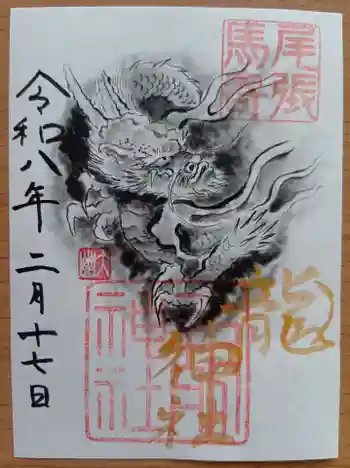 尾張
馬寄
龍
神社
神社
令和八年二月十七日